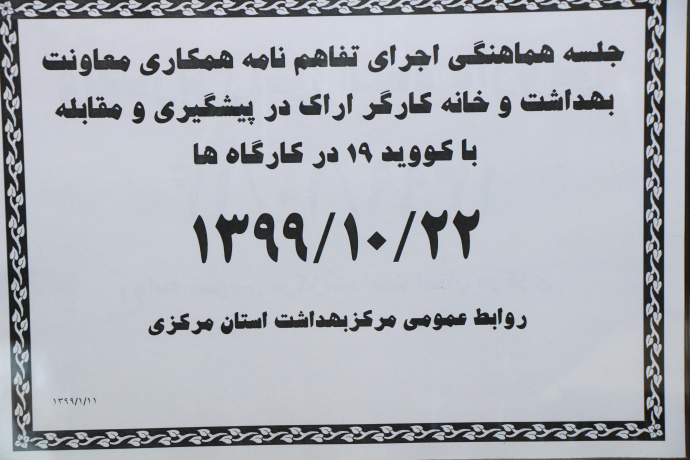 جلسه هماهنگی اجرای تفاهم نامه همکاری معاونت
بهداشت و خانه کارگر اراک در پیشگیری و مقابله
با کووید ۱۹ در کارگاه ها
۱۳۹۹/۱۰/۲۲
روابط عمومی مرکزبهداشت استان مرکزی
۱۳۹۹/۱/۱۱